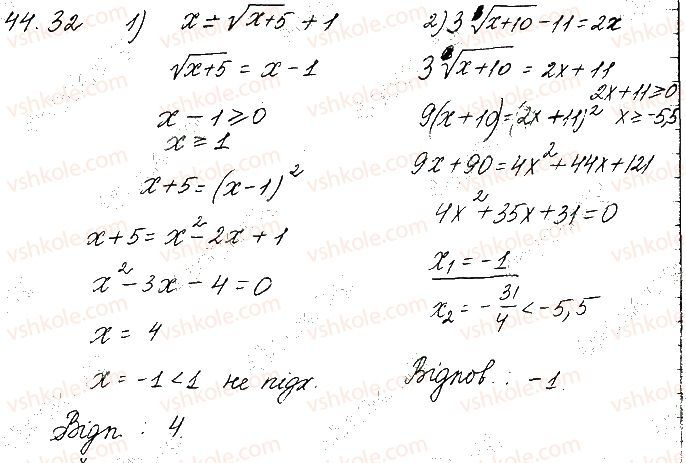 44.32 1) x = √(x+5) + 1
√(x+5) = x - 1
x - 1 ≥ 0
x ≥ 1
x+5 = (x-1)²
x+5 = x² - 2x + 1
x² - 3x - 4 = 0
x = 4
x = -1 < 1 не підх.
Відп : 4.
2) 3√(x+10) - 11 = 2x
3√(x+10) = 2x + 11
2x + 11 ≥ 0
9(x+10) = (2x+11)² x ≥ -5,5
9x + 90 = 4x² + 44x + 121
4x² + 35x + 31 = 0
x₁ = -1
x₂ = -31/4 < -5,5
Відпов : -1.
vshkole.com